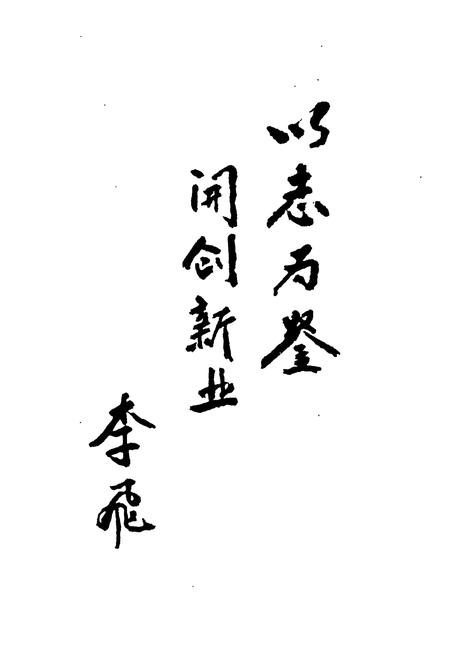 以志为鉴
開创新业
李飛